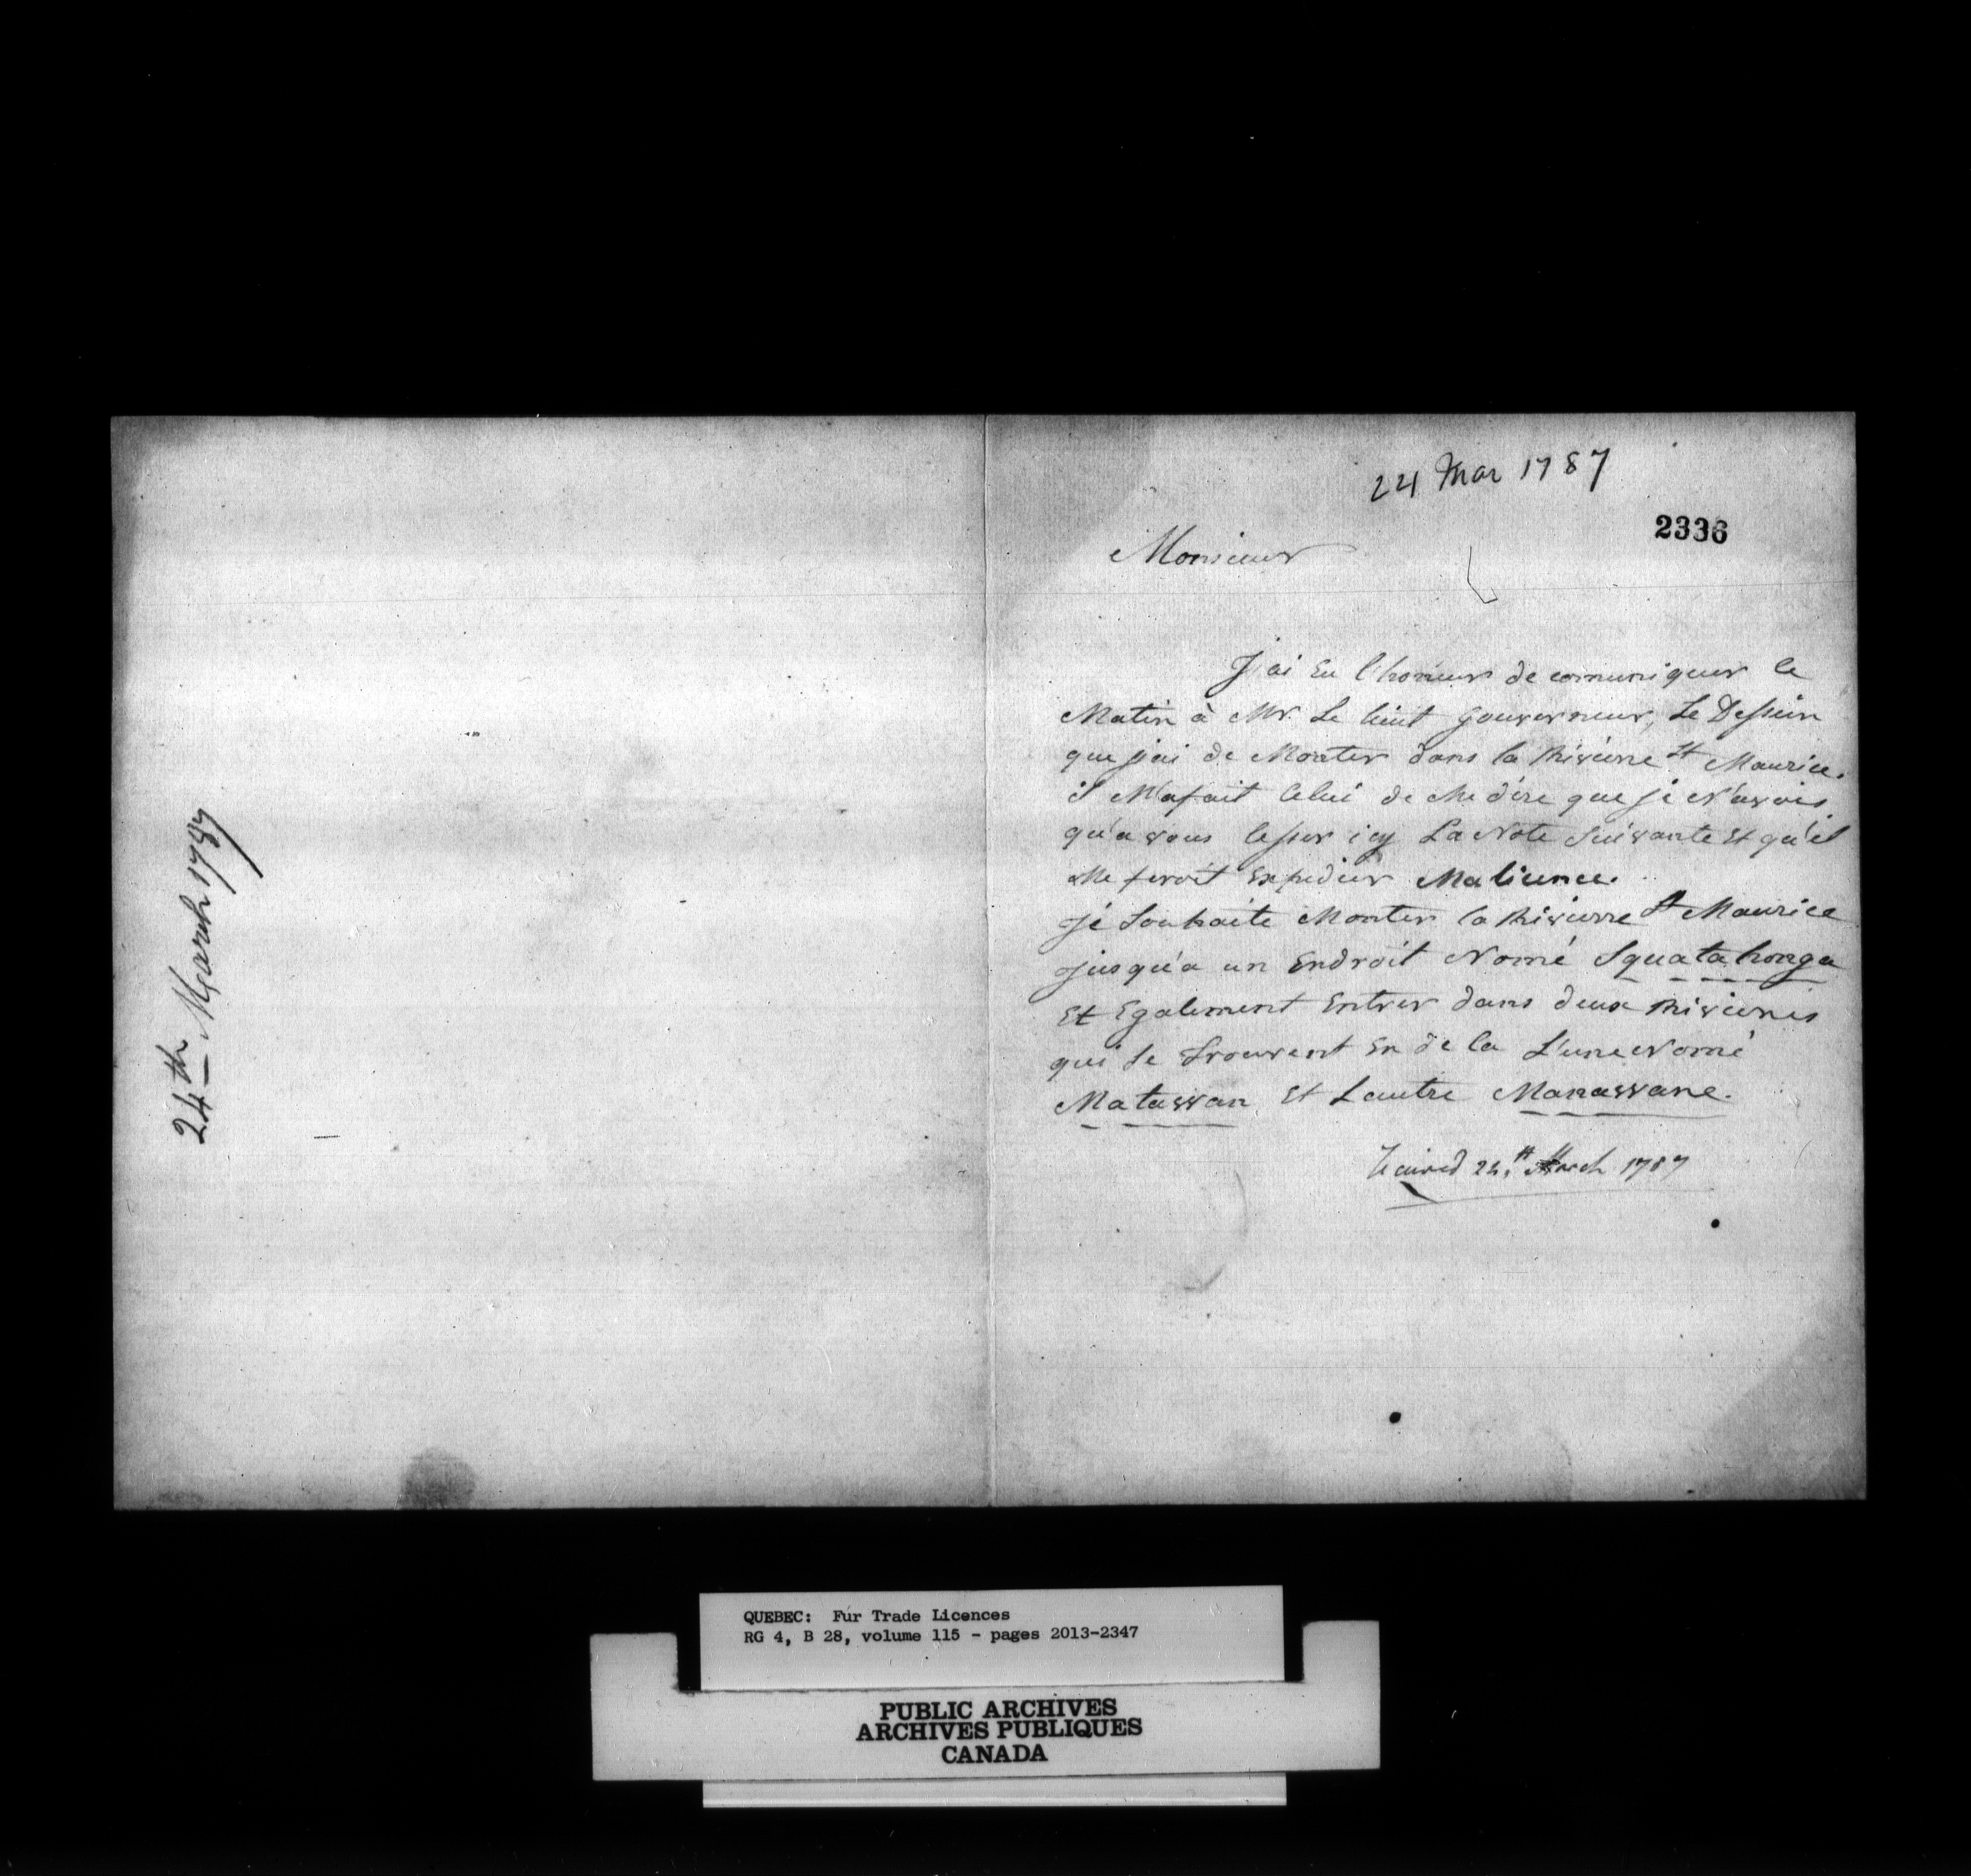 24th March 1787
24 Mar 1787
2336
Monsieur
J'ai Eu l'honneur de comuniquer ce
Matin à Mr. Le lieut gouverneur, Le Dessein
que j'ai de Monter dans la Riviere St Maurice.
il M'a fait Celui de Me dire que je N'avois
qu'a vous lesser icy La Note Suivante Et qu'il
Me feroit Expedier Ma licence.
Je Souhaite Monter la Rivierre St Maurice
jusqu'a un Endroit Nomé Squatahonga
Et Egalement Entrer dans deux Rivieres
qui Se trouvent En de la L'une Nomé
Matawan Et Lautre Manawane.
24th March 1787
QUEBEC: Fur Trade Licences
RG 4, B 28, volume 115 - pages 2013-2347
PUBLIC ARCHIVES
ARCHIVES PUBLIQUES
CANADA